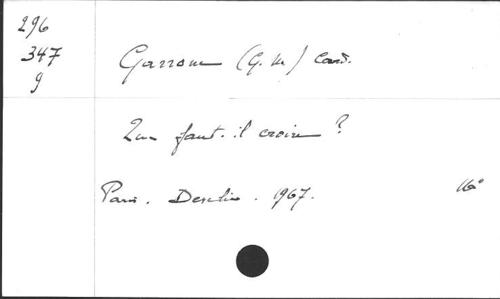 296
347
9
Garrone (G. M.) Card.
Que faut-il croire ?
Paris. Desclée. 1967.
16°